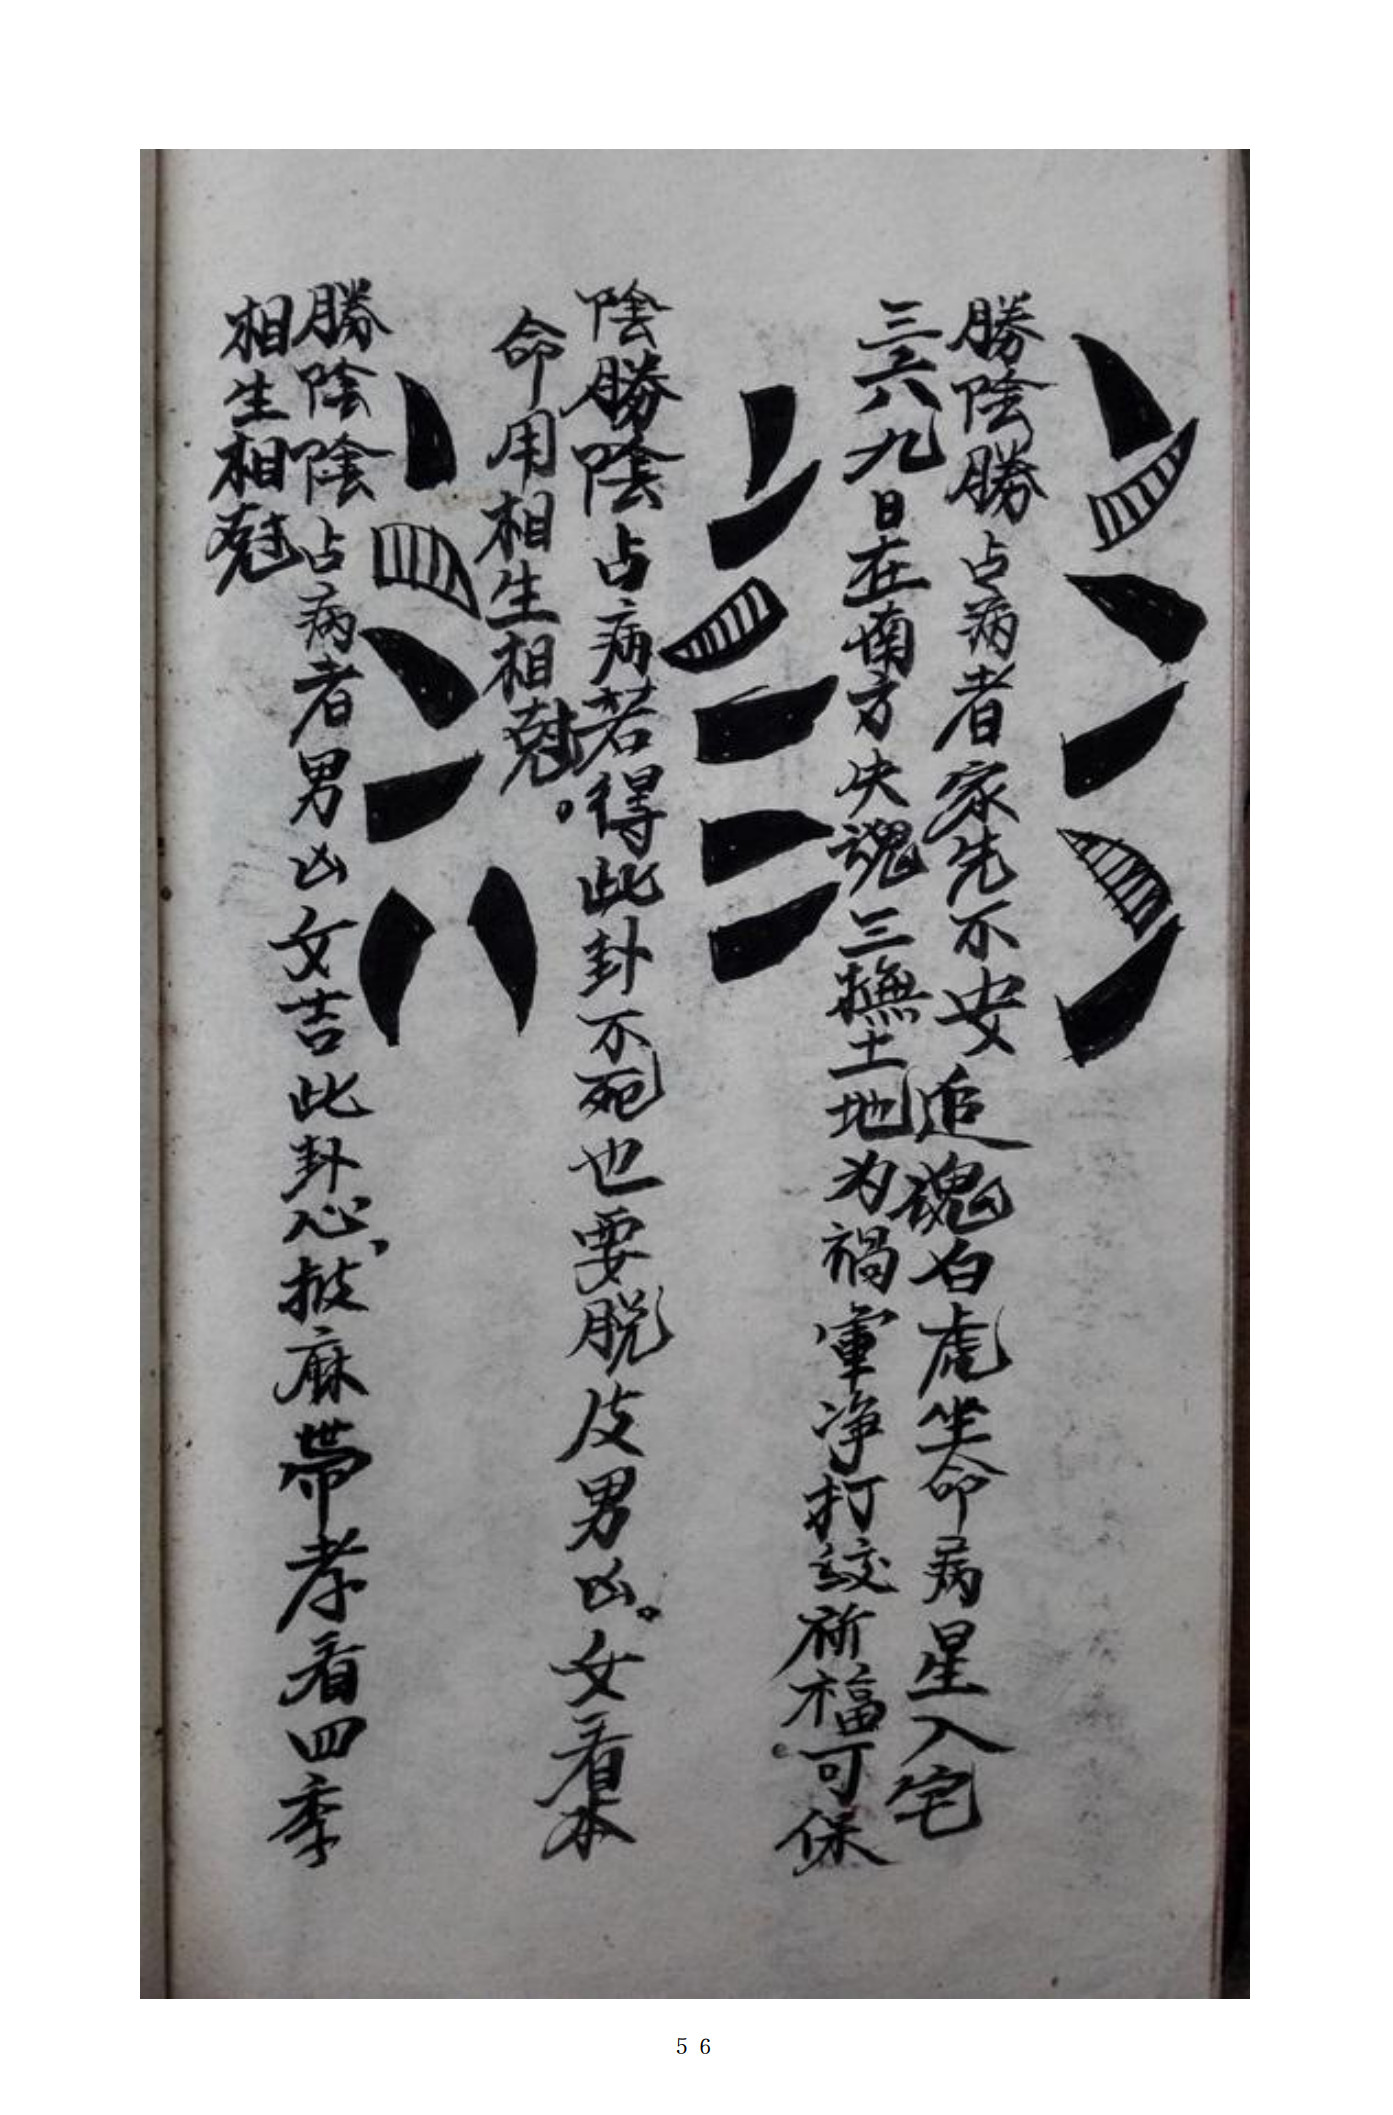 勝陰勝占病者家先不安追魂白虎坐命病星入宅
三六九日在南方失魂三撫土地为禍宜净打絞祈福可保
陰勝陰占病若得此卦不死也要脱皮男凶。女看本
命用相生相尅。
勝陰陰占病者男凶女吉此卦心披麻帶孝看四季
相生相尅
56